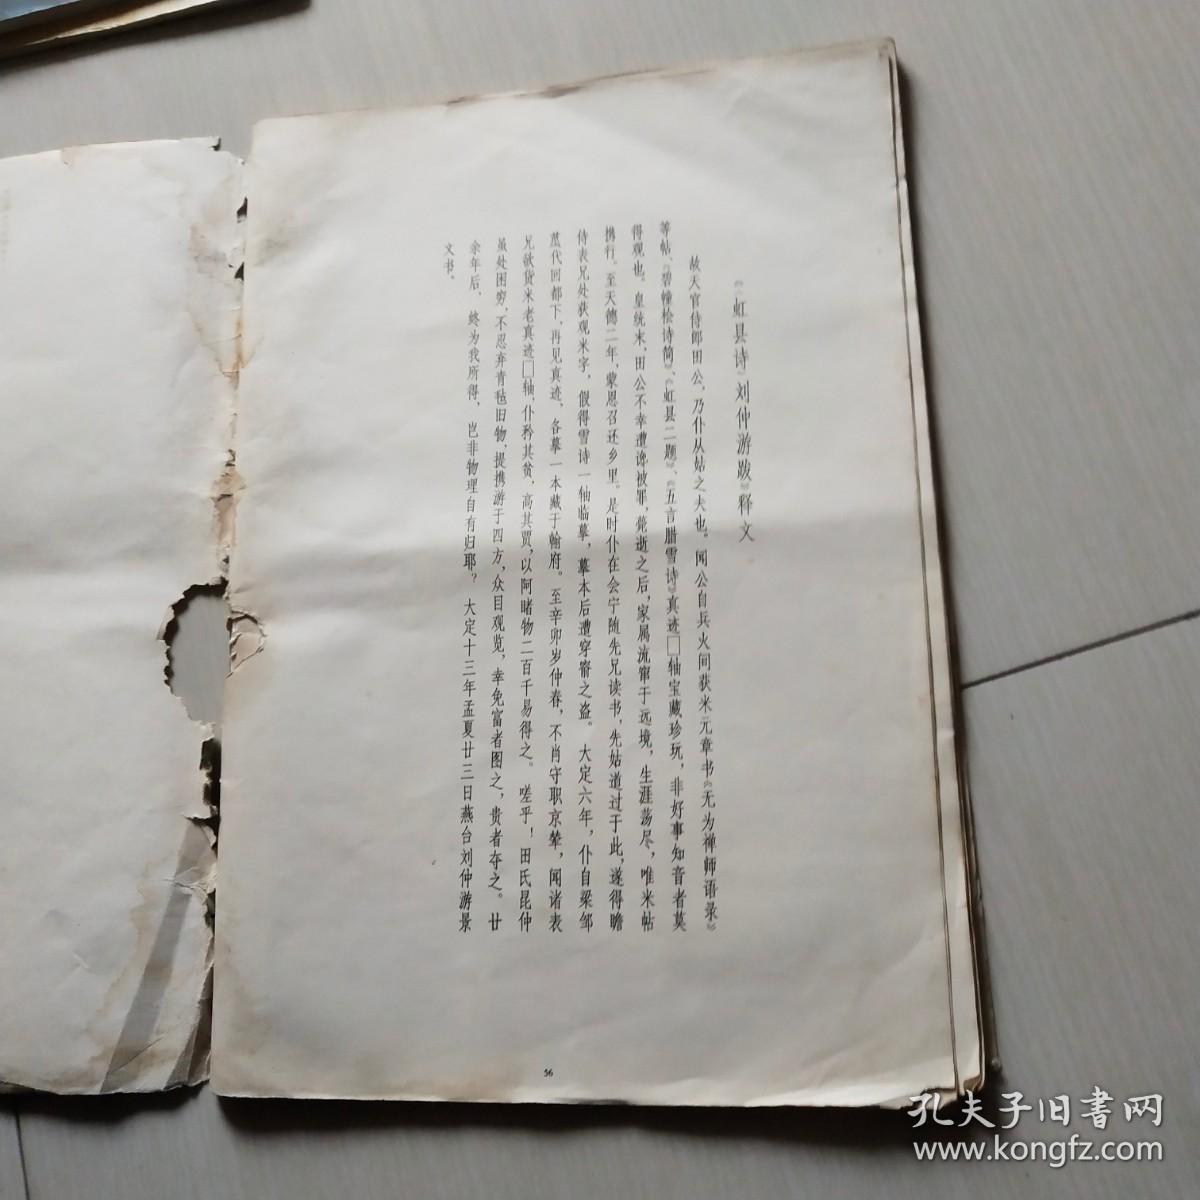 《《虹县诗》刘仲游跋》释文
故天官侍郎田公，乃仆从姑之夫也。闻公自兵火间获米元章书《无为禅师语录》
等帖、《碧幢桧诗简》、《虹县二题》、《五言腊雪诗》真迹□轴宝藏珍玩，非好事知音者莫
得观也。皇统末，田公不幸遭谗被罪，薨逝之后，家属流窜于远境，生涯荡尽，唯米帖
携行。至天德二年，蒙恩召还乡里。是时仆在会宁随先兄读书，先姑道过于此，遂得瞻
侍表兄处获观米字，假得雪诗一轴临摹，摹本后遭穿窬之盗。大定六年，仆自梁邹
莅代回都下，再见真迹，各摹一本藏于翰府。至辛卯岁仲春，不肖守职京辇，闻诸表
兄欲货米老真迹□轴，仆矜其贫，高其贾，以阿睹物二百千易得之。嗟乎！田氏昆仲
虽处困穷，不忍弃青毡旧物，提携游于四方，众目观览，幸免富者图之，贵者夺之。廿
余年后，终为我所得，岂非物理自有归耶？大定十三年孟夏廿三日燕台刘仲游景
文书。
56
孔夫子旧书网
www.kongfz.com